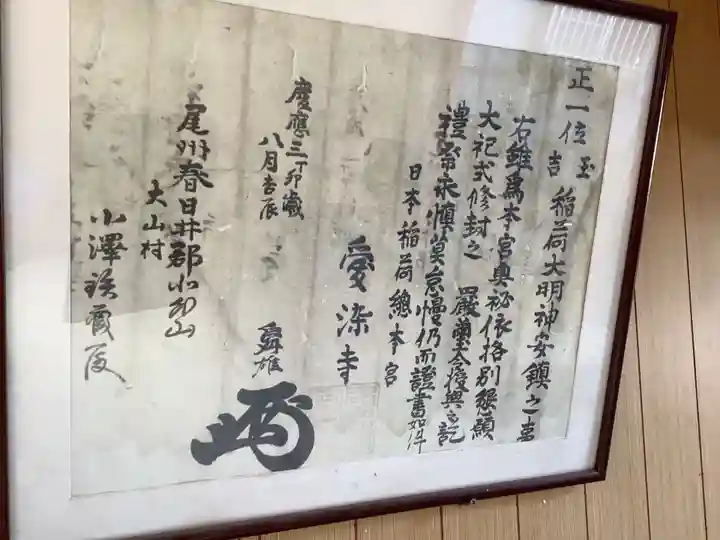 正一位 玉吉 稲荷大明神安鎮之事
右雖為本宮奥祕依格別懇願
大祀式修封之 嚴璽令授與之訖
禮祭永慎莫怠慢仍而證書如件
日本稲荷總本宮
愛染寺
慶應三丁卯歳
八月吉辰
舜雄
尾州春日井郡小牧山
大山村
小澤
殿